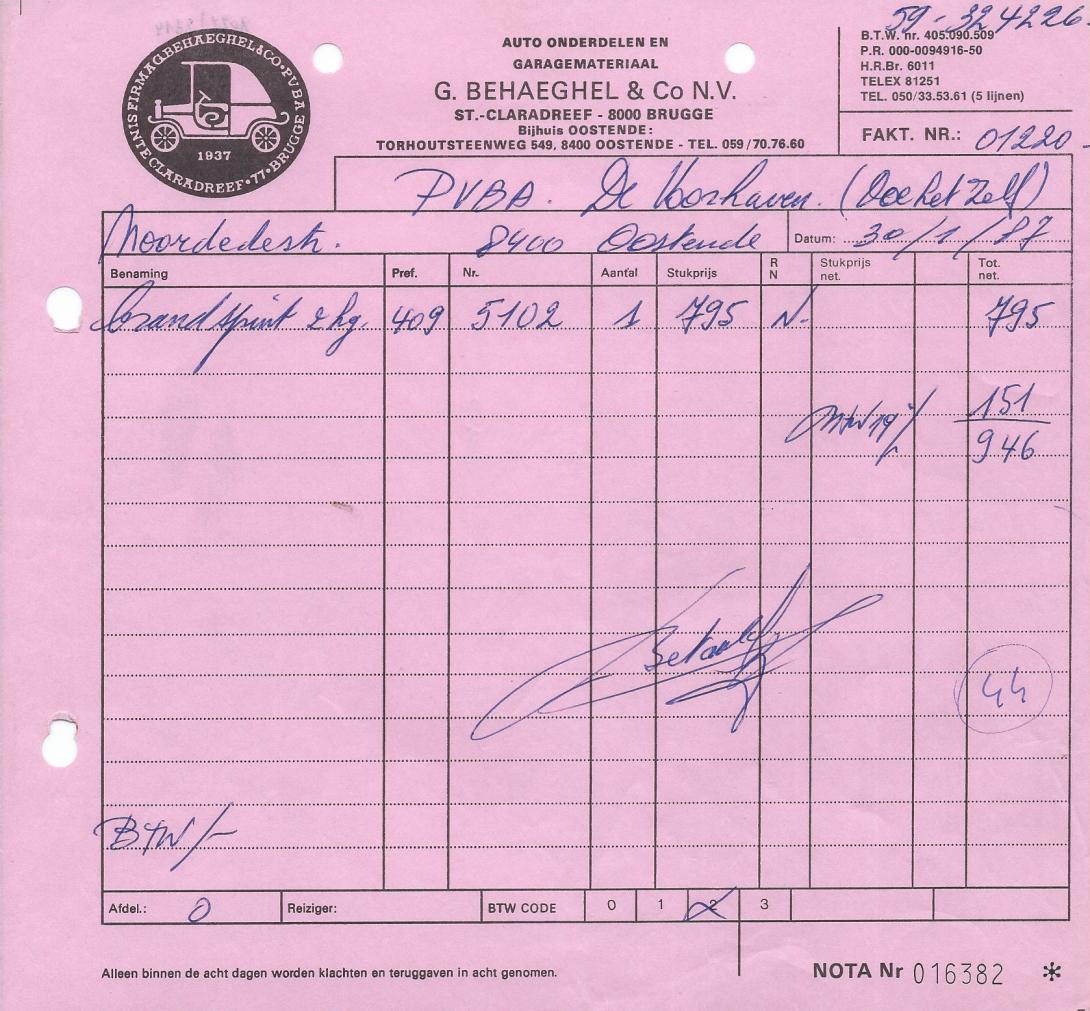 59-324226
B.T.W. nr. 405.090.509
P.R. 000-0094916-50
H.R.Br. 6011
TELEX 81251
TEL. 050/33.53.61 (5 lijnen)
FAKT. NR.: 01220
1937
AUTO ONDERDELEN EN
GARAGEMATERIAAL
G. BEHAEGHEL & Co N.V.
ST.-CLARADREEF - 8000 BRUGGE
Bijhuis OOSTENDE:
TORHOUTSTEENWEG 549, 8400 OOSTENDE - TEL. 059/70.76.60
PVBA. De Voorhaven. (Doe het Zelf)
8400 Oostende Datum: 30/1/87
Benaming Pref. Nr. Aantal Stukprijs R N Stukprijs net. Tot. net.
2 kg. 409 5102 1 795 N. 795
BTW 19% 151
946
Betaald
44
BTW/-
Afdel.: 0 Reiziger: BTW CODE 0 1 2 3
Alleen binnen de acht dagen worden klachten en teruggaven in acht genomen.
NOTA Nr 016382 *